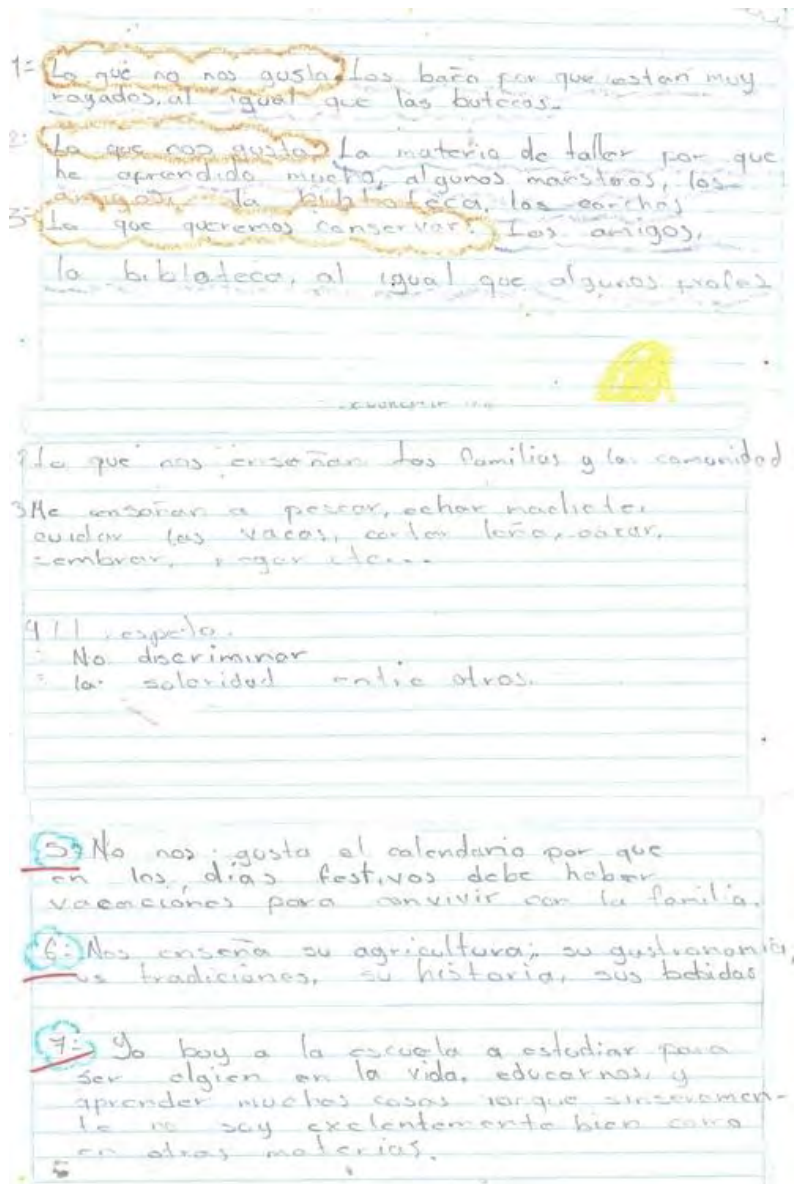 1= Lo que no nos gusta. Los baño por que estan muy
rayados, al igual que las butacas.
2: Lo que nos gusta La materia de taller por que
he aprendido mucho, algunos maestros, los
amigos, la biblioteca, las conchas
3= Lo que queremos conservar: Los amigos,
la biblateca, al igual que algunos profes
Lo que nos enseñan las familias y la comunidad
3 Me enseñan a pescar, echar machete,
cuidar las vacas, cortar leña, cazar,
sembrar, regar etc...
4 respeto.
No discriminar
la solaridad entre otros.
5: No nos gusta el calendario por que
en los dias festivos debe haber
vacaciones para convivir con la familia.
6: Nos enseña su agricultura, su gustronomia,
us tradiciones, su historia, sus bebidas
7= Yo boy a la escuela a estudiar para
ser algien en la vida, educarnos, y
aprender muchas cosas porque sinseramen-
te no soy exelentemente bien como
en otras materias.